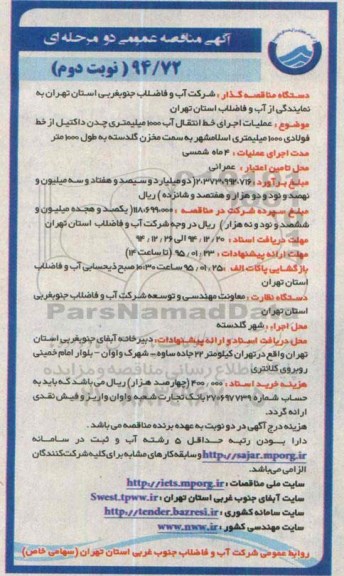 آگهی مناقصه عمومی دو مرحله ای
۹۴/۷۲ ( نوبت دوم)
دستگاه مناقصه گذار : شرکت آب و فاضلاب جنوبغربی استان تهران به
نمایندگی از آب و فاضلاب استان تهران
موضوع : عملیات اجرای خط انتقال آب ۱۰۰۰ میلیمتری چدن داکتیل از خط
فولادی ۱۰۰۰ میلیمتری اسلامشهر به سمت مخزن گلدسته به طول ۱۰۰۰ متر
مدت اجرای عملیات : ۴ ماه شمسی
محل تامین اعتبار : عمرانی
مبلغ برآورد : ۲،۳۷۳،۹۹۲،۷۱۶( دو میلیارد و سیصد و هفتاد و سه میلیون و
نهصد و نود و دو هزار و هفتصد و شانزده ) ریال
مبلغ سپرده شرکت در مناقصه : ۱۱۸،۶۹۹،۰۰۰( یکصد و هجده میلیون و
ششصد و نود و نه هزار ) ریال در وجه شرکت آب و فاضلاب استان تهران
مهلت دریافت اسناد : ۲۰ . ۱۲ . ۹۴ الی ۲۶ . ۱۲ . ۹۴
مهلت ارائه پیشنهادات : ۲۳ . ۰۱ . ۹۵ (تا ساعت ۱۴)
بازگشایی پاکات الف : ۲۵ . ۰۱ . ۹۵ ساعت ۱۰:۳۰ صبح ذیحسابی آب و فاضلاب
استان تهران
دستگاه نظارت : معاونت مهندسی و توسعه شرکت آب و فاضلاب جنوبغربی
استان تهران
محل اجراء : شهر گلدسته
محل دریافت اسناد و ارائه پیشنهادات : دبیرخانه آبفای جنوبغربی استان
تهران واقع در تهران کیلومتر ۲۲ جاده ساوه – شهرک واوان – بلوار امام خمینی
روبروی کلانتری
هزینه خرید اسناد : ۴۰۰،۰۰۰ (چهارصد هزار) ریال می باشد که باید به
حساب شماره ۲۷۰۶۹۷۷۳۹ بانک تجارت شعبه واوان واریز و فیش نقدی
ارائه گردد.
هزینه درج آگهی در دو نوبت به عهده برنده مناقصه می باشد.
دارا بودن رتبه حداقل ۵ رشته آب و ثبت در سامانه
http://sajar.mporg.ir و سابقه کارهای مشابه برای کلیه شرکت کنندگان
الزامی می باشد.
سایت ملی مناقصات : http://iets.mporg.ir
سایت آبفای جنوب غربی استان تهران : Swest.tpww.ir
سایت سامانه کشوری : http://tender.bazresi.ir
سایت مهندسی کشور : www.nww.ir
روابط عمومی شرکت آب و فاضلاب جنوب غربی استان تهران (سهامی خاص)
ParsNamadData